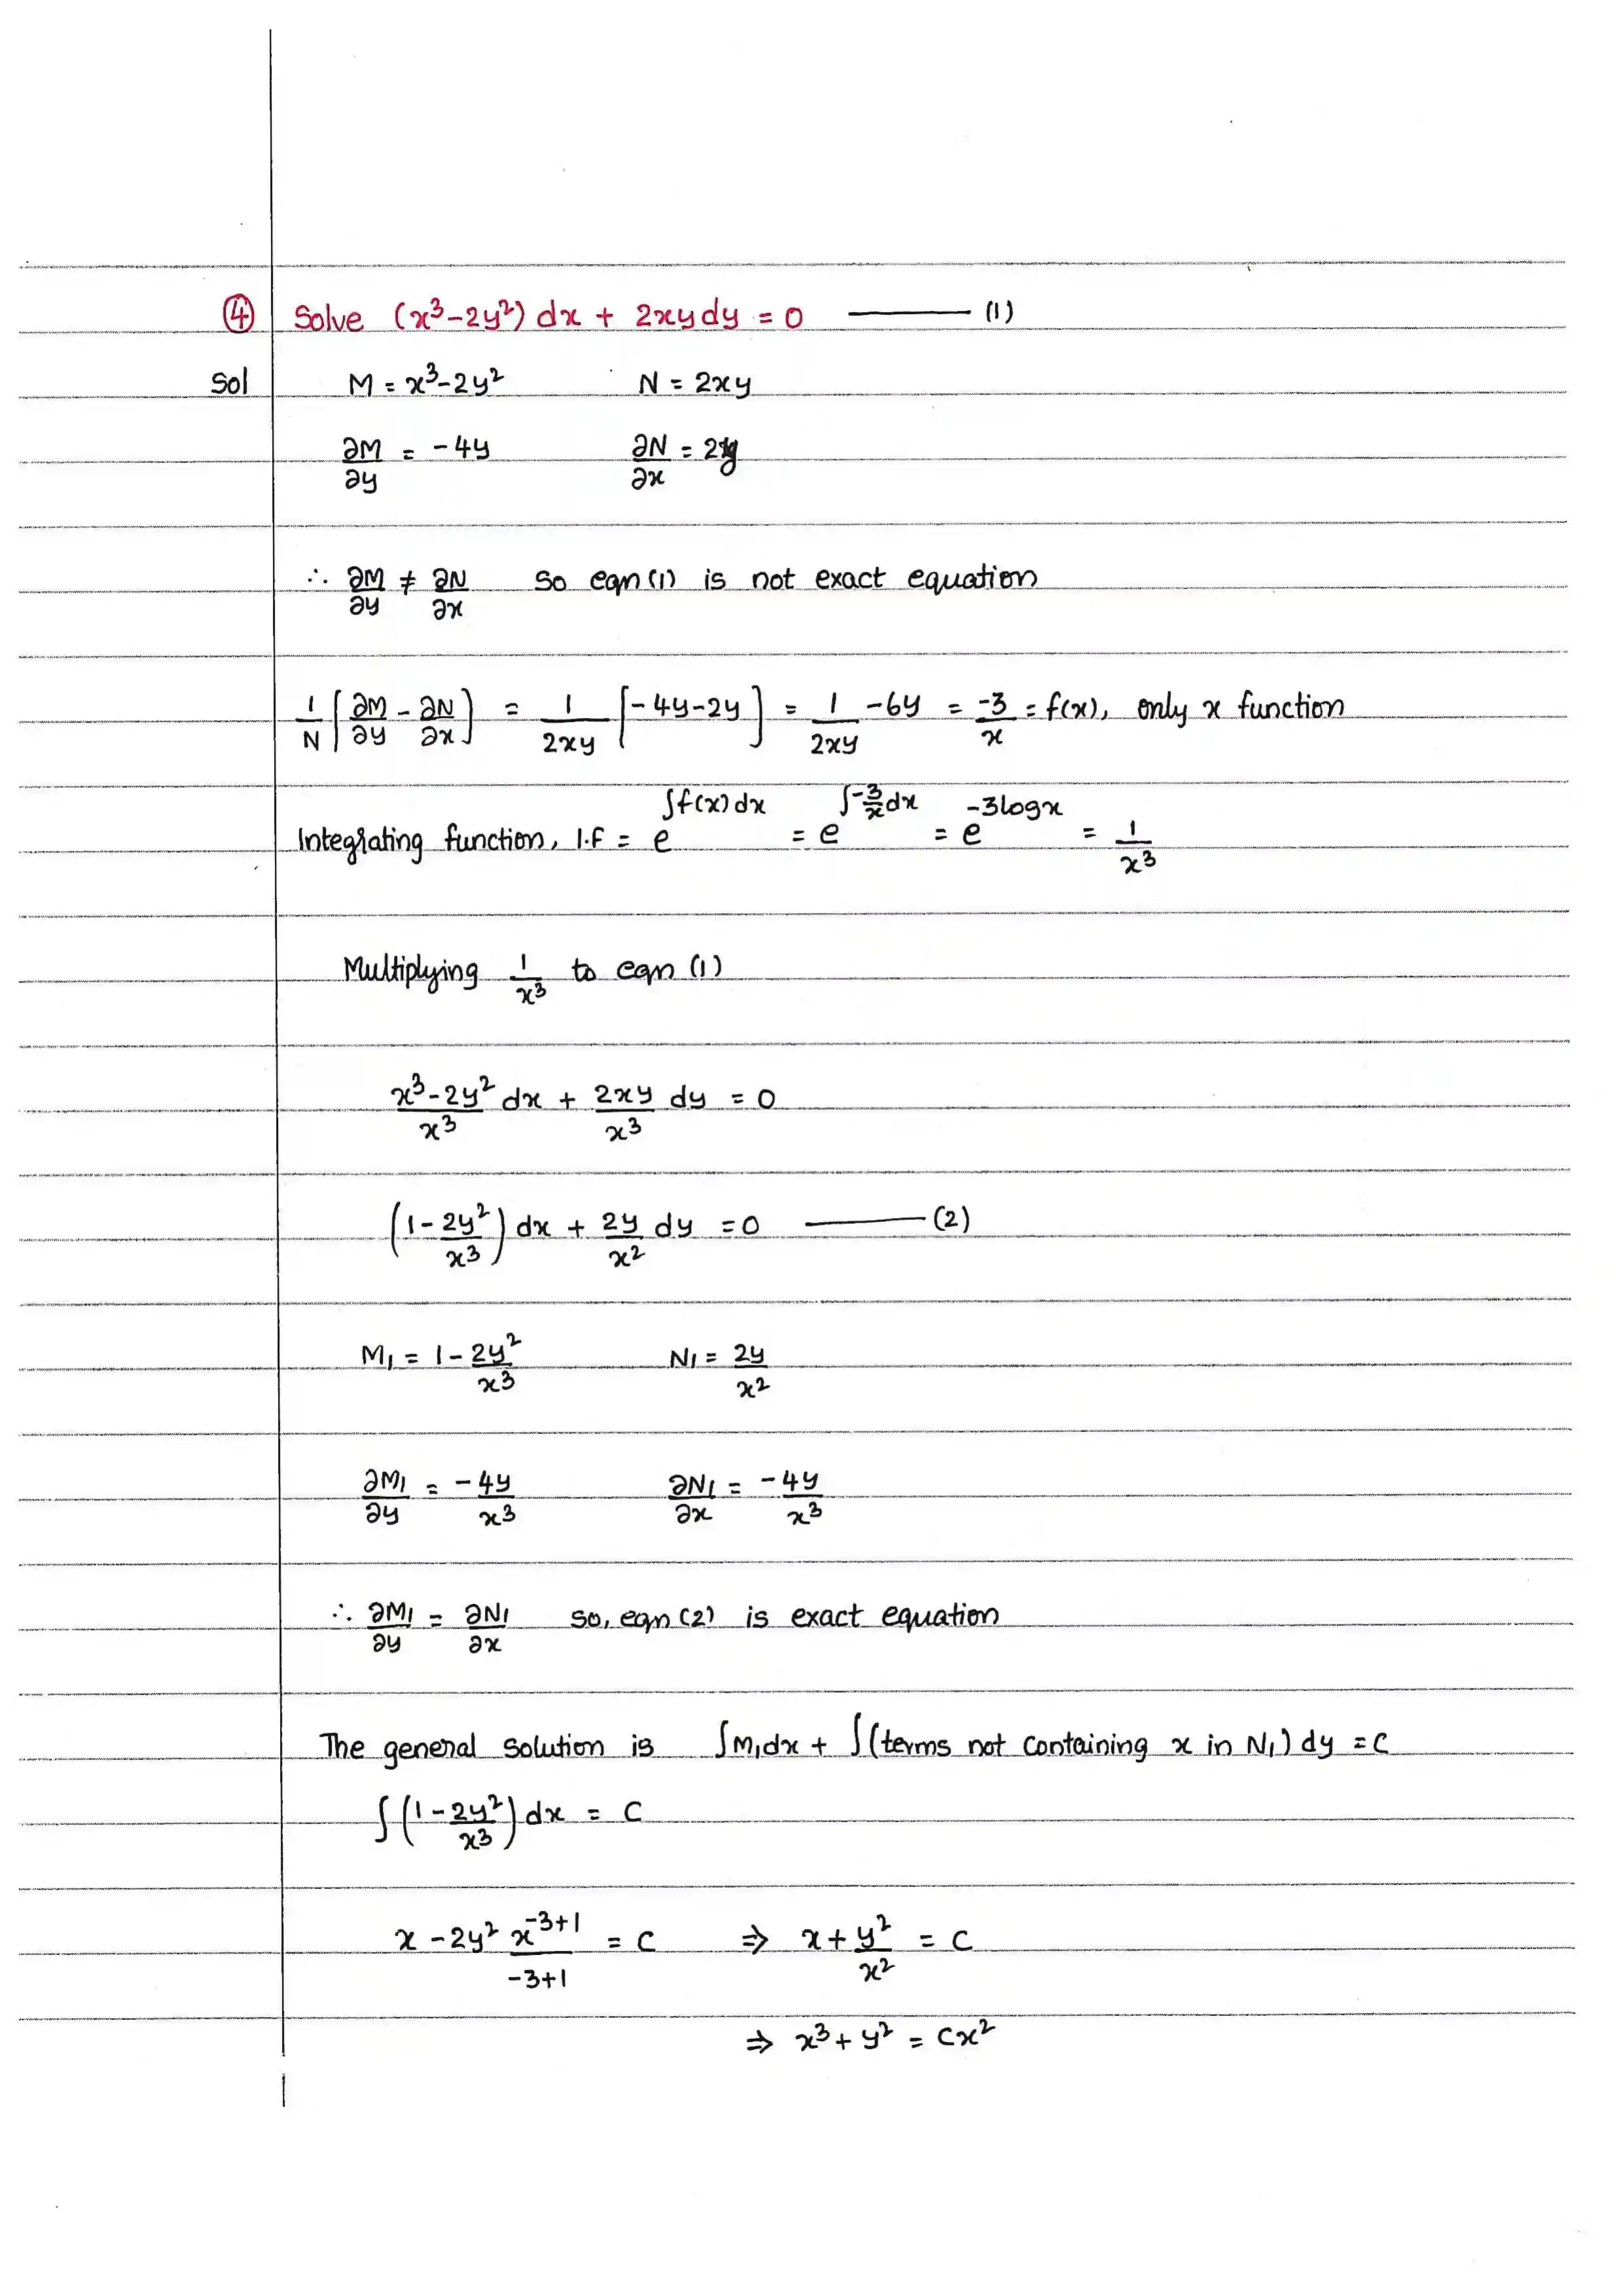 ④ Solve (x³-2y²) dx + 2xy dy = 0 ——— (1)
Sol M = x³-2y² N = 2xy
∂M/∂y = -4y ∂N/∂x = 2y
∴ ∂M/∂y ≠ ∂N/∂x so eqn (1) is not exact equation
1/N [∂M/∂y - ∂N/∂x] = 1/2xy [-4y-2y] = 1/2xy -6y = -3/x = f(x), only x function
Integrating function, I.F = e^∫f(x)dx = e^∫-3/x dx = e^-3logx = 1/x³
Multiplying 1/x³ to eqn (1)
x³-2y²/x³ dx + 2xy/x³ dy = 0
(1 - 2y²/x³) dx + 2y/x² dy = 0 ——— (2)
M₁ = 1 - 2y²/x³ N₁ = 2y/x²
∂M₁/∂y = -4y/x³ ∂N₁/∂x = -4y/x³
∴ ∂M₁/∂y = ∂N₁/∂x so, eqn (2) is exact equation
The general solution is ∫M₁dx + ∫(terms not containing x in N₁) dy = C
∫(1 - 2y²/x³) dx = C
x - 2y² x^-3+1/-3+1 = C ⇒ x + y²/x² = C
⇒ x³ + y² = Cx²